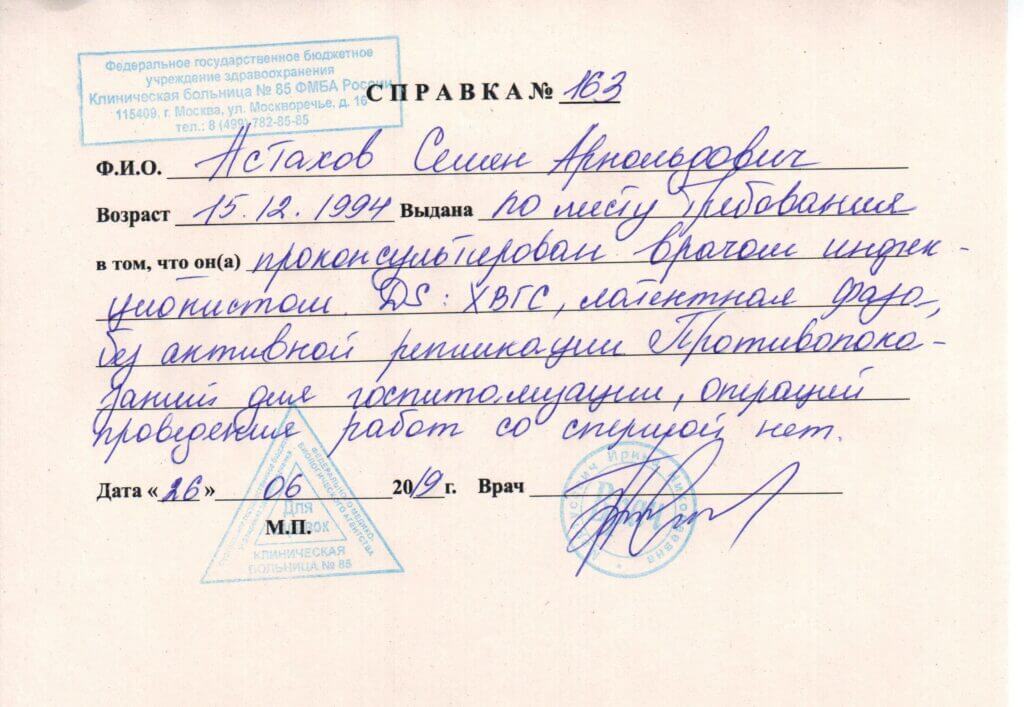 Федеральное государственное бюджетное
учреждение здравоохранения
Клиническая больница № 85 ФМБА России
115409, г. Москва, ул. Москворечье, д. 16
тел.: 8 (499) 782-85-85
СПРАВКА № 163
Ф.И.О. Астахов Семен Арнольдович
Возраст 15.12.1994 Выдана по месту требования
в том, что он(а) проконсультирован врачом инфек-
ционистом. DS: ХВГС, латентная фаза,
без активной репликации Противопока-
заний для госпитализации, операций
проведения работ со спермой нет.
Дата «26» 06 2019 г. Врач
М.П.
ФЕДЕРАЛЬНОГО МЕДИКО-
БИОЛОГИЧЕСКОГО АГЕНТСТВА
Для
справок
КЛИНИЧЕСКАЯ
БОЛЬНИЦА № 85
Ирина Николаевна
Врач